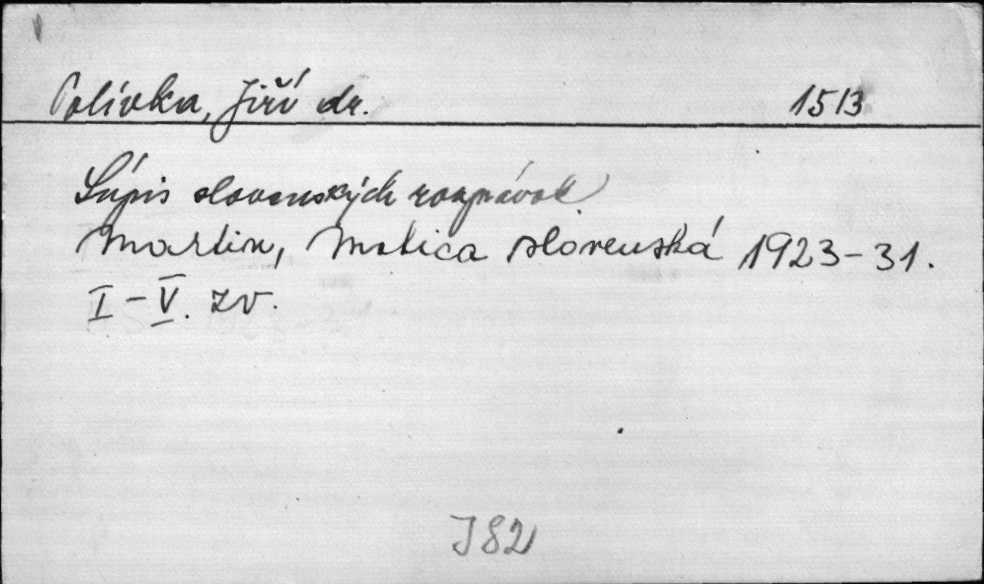 Polívka, Jiří dr. 1513
Súpis slovenských rozprávok.
Martin, Matica slovenská 1923-31.
I-V. zv.
J 82